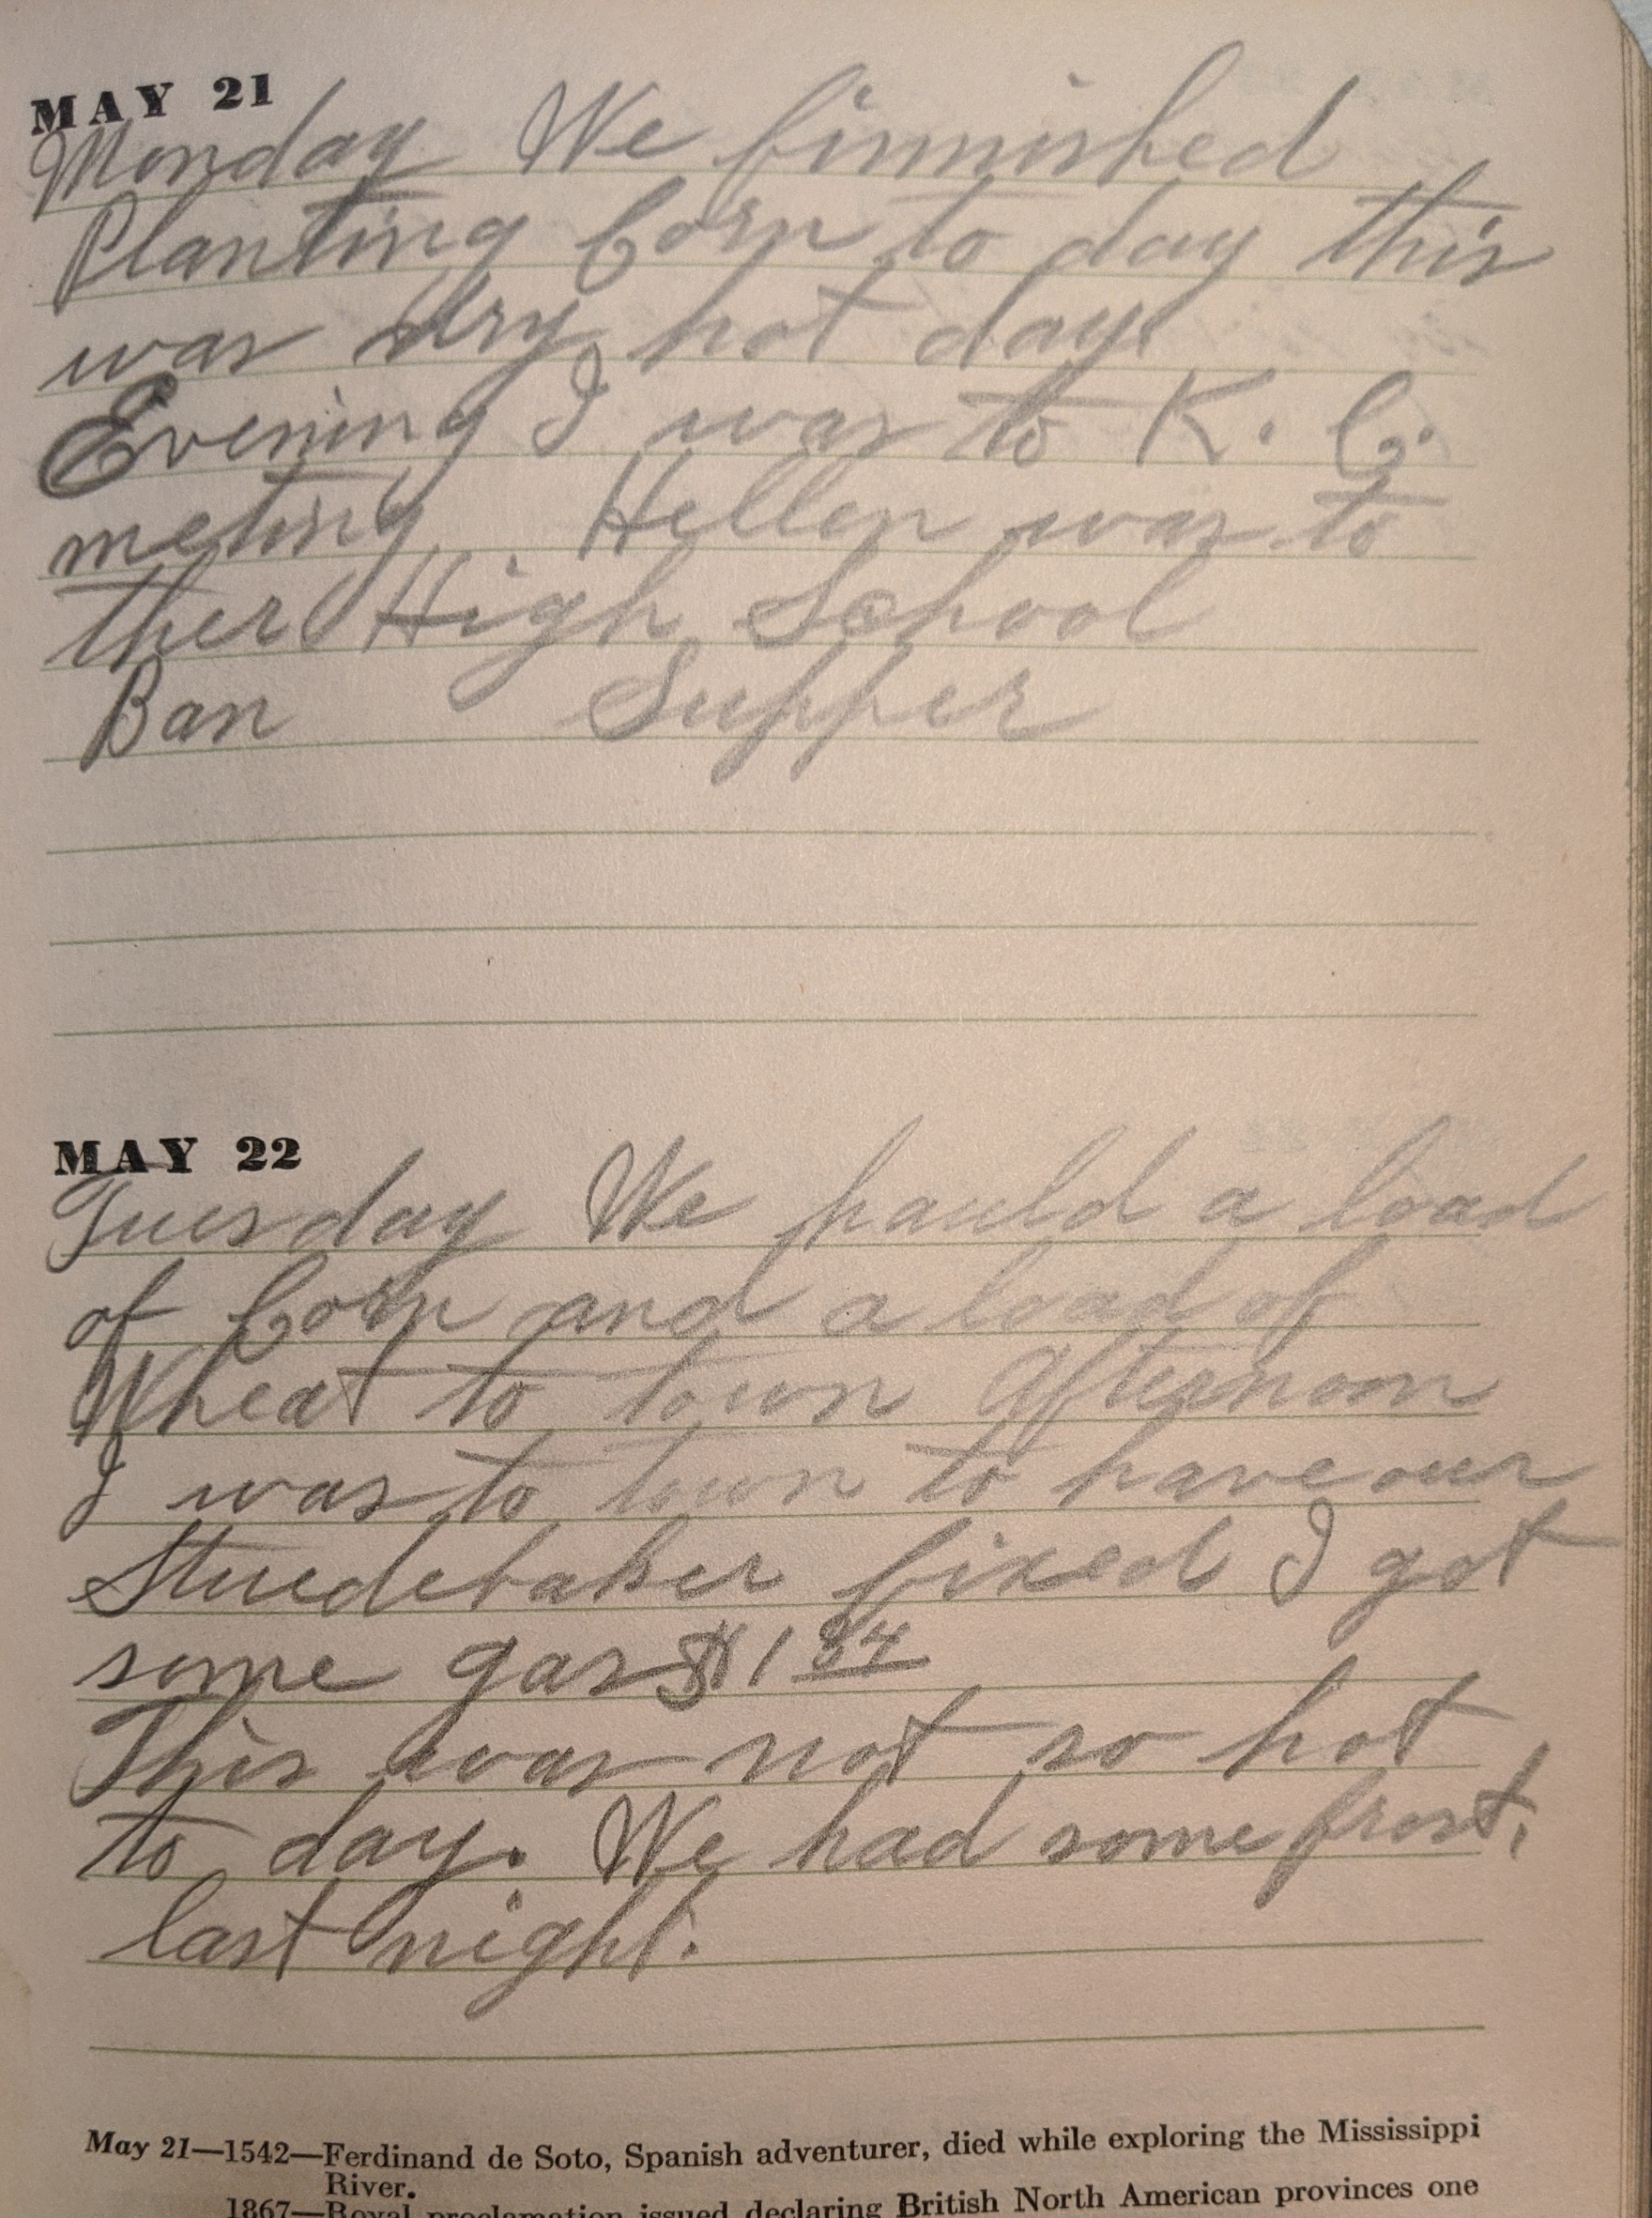 MAY 21
Monday We finnished
Planting Corn to day this
was dry hot day.
Evening I was to K. C.
meting Hellen was to
ther High School
Ban Supper
MAY 22
Tuesday We hauld a load
of Corn and a load of
Wheat to town Afternoon
I was to town to have our
Studebaker fixed I got
some gas $1 84
This was not so hot
to day. We had some frost,
last night.
May 21—1542—Ferdinand de Soto, Spanish adventurer, died while exploring the Mississippi
River.
1867—Royal proclamation issued declaring British North American provinces one